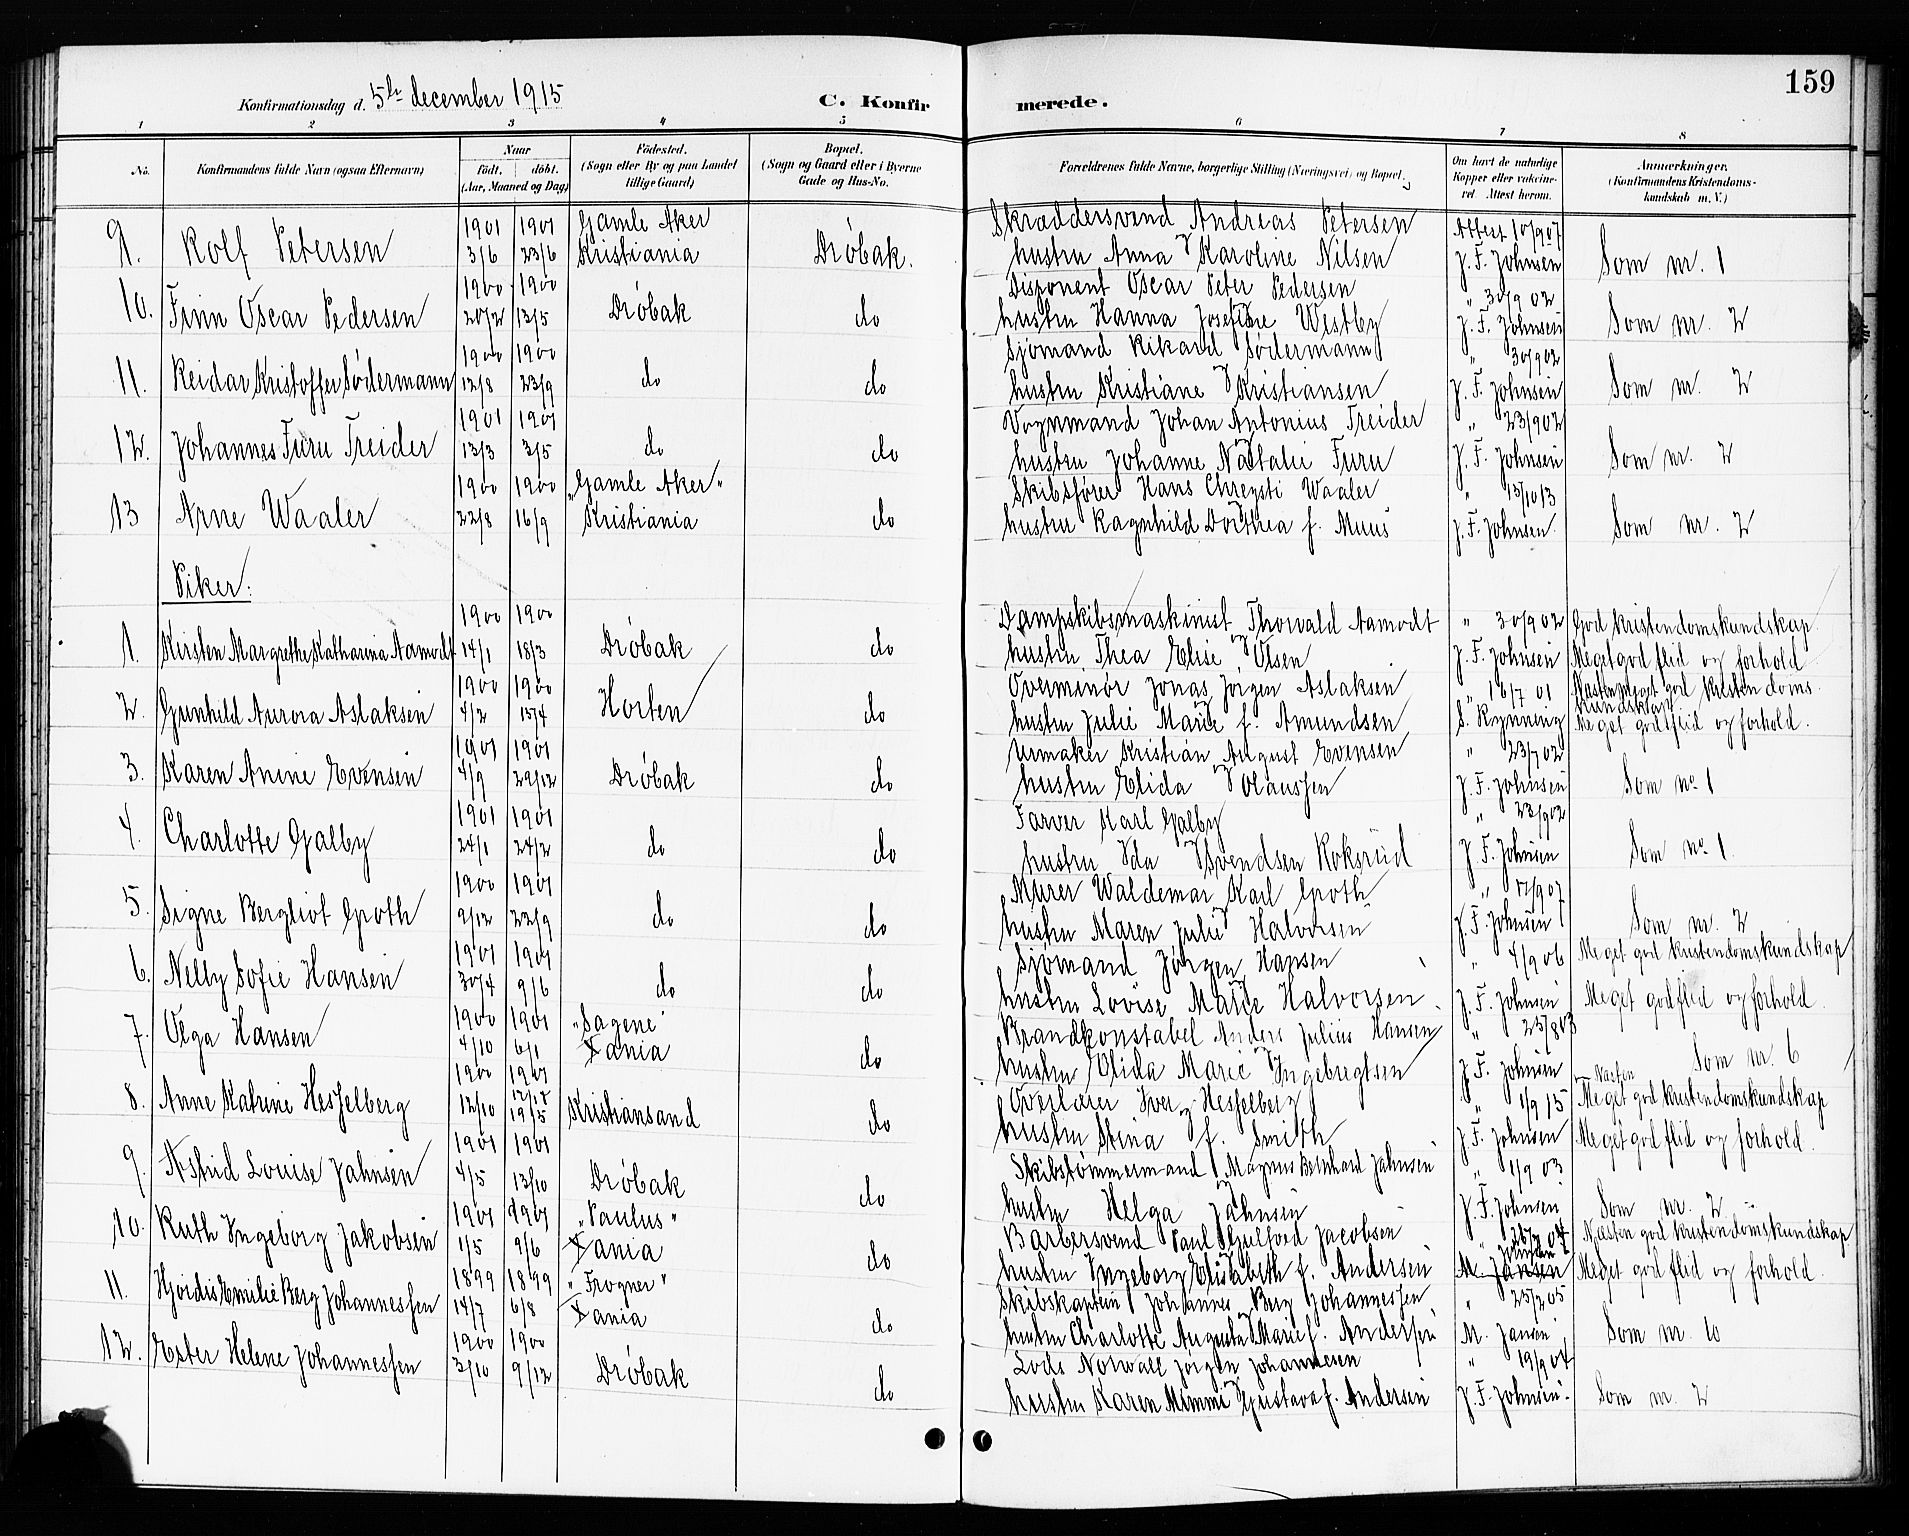 159
Konfirmationsdag d. 5te december 1915 C. Konfirmerede.
1 2 3 4 5 6 7 8
No. Konfirmandens fulde Navn (ogsaa Efternavn) Naar født. døbt. (Aar, Maaned og Dag) Födested. (Sogn eller By og paa Landet tillige Gaard) Bopæl. (Sogn og Gaard eller i Byerne Gade og Hus-No. Forældrenes fulde Navne, borgerlige Stilling (Næringsvei) og Bopæl. Om havt de naturlige Kopper eller vakcineret. Attest herom. Anmærkninger. (Konfirmandens Kristendomskundskab m. V.)
1901 1901 Gamle Aker Skræddersvend Andreas Petersen Attest 10/9 07
9. Rolf Petersen 3/6 23/6 Kristiania Drøbak. hustru Anna Karoline Nilsen J. F. Johnsen Som nr. 1
1900 1900 Disponent Oscar Peter Pedersen " 30/9 02
10. Finn Oscar Pedersen 20/2 13/5 Drøbak do hustru Hanna Josefine Westby J. F. Johnsen Som nr. 2
1900 1900 Sjømand Rikard Södermann " 30/9 02
11. Reidar Kristoffer Södermann 12/8 23/9 do do hustru Kristiane Kristiansen J. F. Johnsen Som nr. 2
1901 1901 Vognmand Johan Antonius Treider " 23/9 02
12. Johannes Furu Treider 13/3 3/5 do do hustru Johanne Natalie Furu J. F. Johnsen Som nr. 2
1900 1900 "Gamle Aker" Skibsfører Hans Chrysti Waaler " 13/10 13
13 Arne Waaler 22/8 16/9 Kristiania do hustru Ragnhild Dorthea f. Muus J. F. Johnsen. Som nr. 2
Piker:
1900 1900 Dampskibsmaskinist Thorvald Aamodt " 30/9 02 God kristendomskundskap.
1. Kirsten Margrethe Katharina Aamodt 14/1 18/3 Drøbak do hustru Thea Elise Olsen J. F. Johnsen Meget god flid og forhold
1900 1900 Overminør Jonas Jörgen Aslaksen " 16/7 01 Næsten meget god kristendomskundskap
2. Gunhild Aurora Aslaksen 4/2 15/4 Horten do hustru Julie Marie f. Amundsen S. Rynning Meget god flid og forhold.
1901 1901 Urmaker Kristian August Evensen " 23/7 02
3. Karen Anine Evensen 4/9 29/12 Drøbak do hustru Elida Olaussen J. F. Johnsen Som no. 1
1901 1901 Farver Karl Galby " 23/9 02
4. Charlotte Galby 24/1 24/2 do do hustru Ida Svendsen Koksrud J. F. Johnsen Som no. 1.
1900 1901 Murer Waldemar Karl Groth " 17/9 07
5. Signe Bergliot Groth 9/12 22/9 do do hustru Maren Julie Halvorsen J. F. Johnsen Som nr. 2
1901 1901 Sjømand Jørgen Hansen " 4/9 06 Meget god kristendomskundskap
6. Nelly Sofie Hansen 30/4 9/6 do do hustru Lovise Marie Halvorsen. J. F. Johnsen Meget god flid og forhold.
1900 1901 "Sagene" Brandkonstabel Anders Julius Hansen " 25/8 03
7. Olga Hansen 4/10 6/1 Xania do hustru Elida Marie Ingebregtsen J. F. Johnsen Som nr. 6
1900 1901 Overlærer Iver Hesselberg " 1/9 15 Næsten Meget god kristendomskundskap
8. Anne Katrine Hesselberg 12/10 19/5 Kristiansand do hustru Stina f. Smith J. F. Johnsen Meget god flid og forhold.
1901 1901 Skibstømmermand Magnus Bernhard Jahnsen " 1/9 03
9. Astrid Louise Jahnsen 4/5 13/10 Drøbak do hustru Helga Jahnsen J. F. Johnsen Som nr. 2
1901 1901 "Paulus" Barbersvend Paul Hjalfred Jacobsen Næsten god kristendomskundskap
10. Ruth Ingeborg Jakobsen 1/5 9/6 Xania do hustru Ingeborg Elisabeth f. Andersen M. Jansen Meget god flid og forhold.
1899 1899 "Frogner" Skibskaptein Johannes Berg Johannessen " 25/2 05
11. Hjørdis Emilie Berg Johannessen 14/7 6/8 Xania do hustru Charlotte Augusta Marie f. Andersen M. Jansen Som nr. 10
1900 1900 Lods Norvall Jørgen Johannesen " 19/9 04
12. Ester Helene Johannessen 3/10 9/12 Drøbak do hustru Karen Mimmi Gustava f. Andersen J. F. Johnsen. Som nr. 2